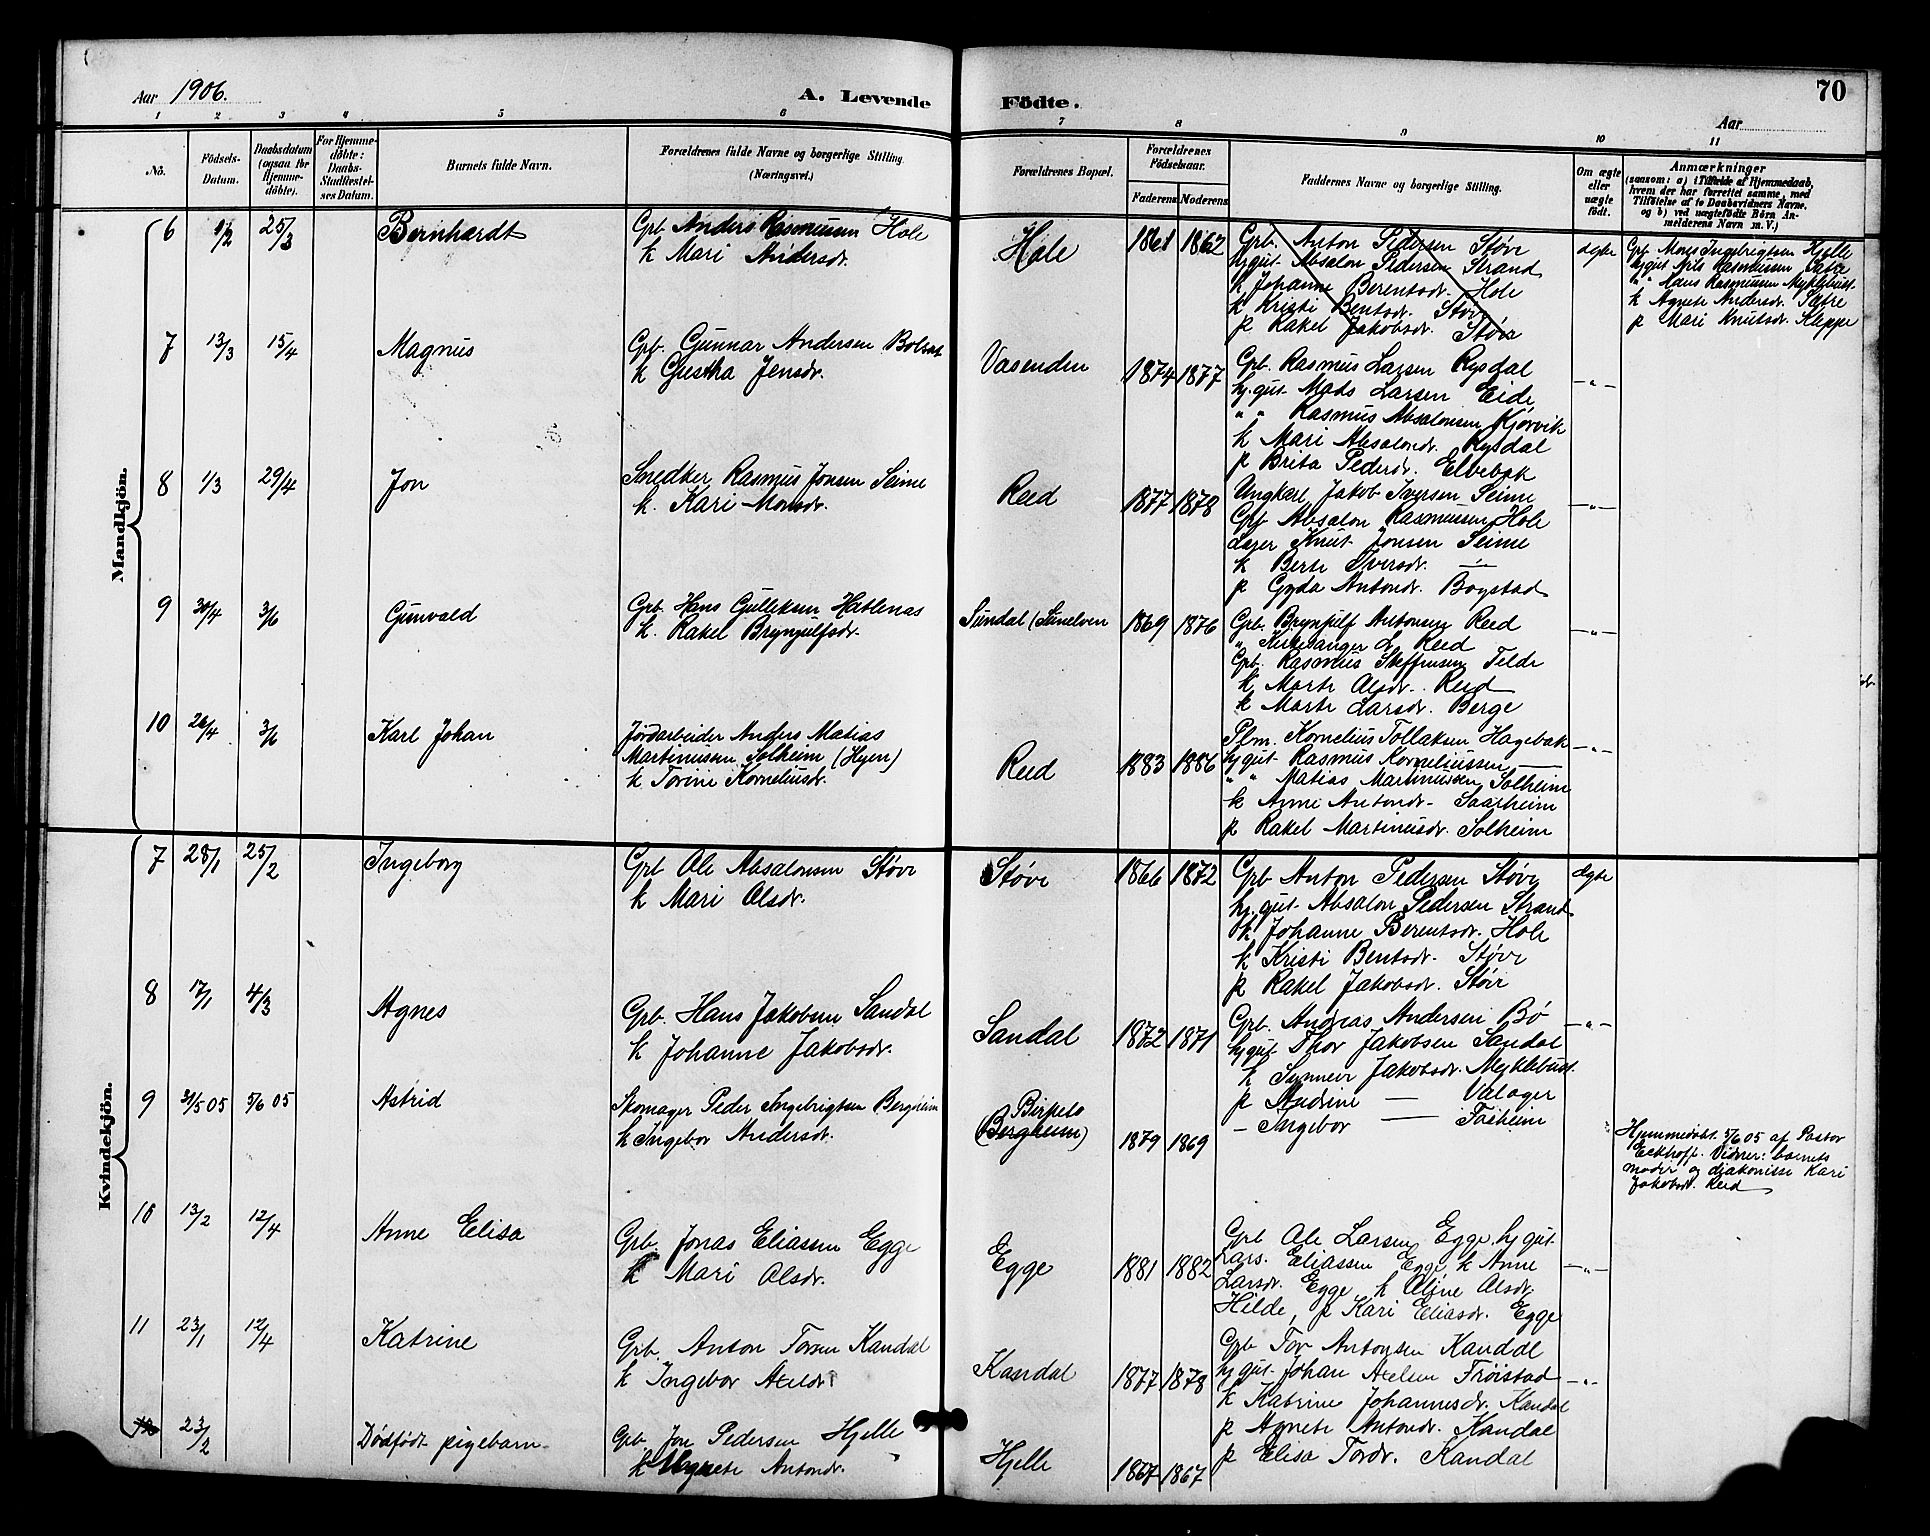 Aar 1906.
A. Levende Födte.
70
Aar
1 2 3 4 5 6 7 8 9 10 11
No.
Födsels-Datum.
Daabsdatum (ogsaa for Hjemmedöbte).
For Hjemmedöbte: Daabs-Stadfæstelses Datum.
Barnets fulde Navn.
Forældrenes fulde Navne og borgerlige Stilling.
(Næringsvei.)
Forældrenes Bopæl.
Forældrenes Födselsaar.
Faderens
Moderens
Faddernes Navne og borgerlige Stilling.
Om ægte eller uægte födt.
Anmærkninger
(saasom: a) i Tilfælde af Hjemmedaab, hvem der har forrettet samme, med Tilföielse af to Daabsvidners Navne. og b) ved uægtefödte Börn Anmelderens Navn m. V.)
Mandkjön.
6 1/2 25/3 Bernhardt
Grb Anders Rasmussen Hole
k Mari Andersdr.
Hole 1861 1862
Grb. Anton Pedersen Støve
hj.gut. Absalon Pedersen Strand
k Johanne Berentsdr. Hole
k Kristi Bentsdr. Støve
p Rakel Jakobsdr. Støve
ægte
Grb Mons Ingebrigtsen Hjelle
hj.gut Nils Rasmussen Sætre
" " Hans Rasmussen Myklebust
k Agnete Andersdr. Sætre
p Mari Knutsdr. Kleppe
7 13/3 15/4 Magnus
Grb. Gunnar Andersen Bolset
k Gustha Jensdr.
Vasenden 1874 1877
Grb. Rasmus Larsen Rysdal
hj.gut. Mads Larsen Eide
" " Rasmus Absalonsen Kjørvik
k Mari Absalondr. Rysdal
p Brita Pedersdr. Elvebak
—"—
8 1/3 29/4 Jon
Snedker Rasmus Jonsen Seime
k. Kari Monsdr.
Reed 1877 1878
Ungkarl Jakob Iversen Seime
Grb Absalon Rasmussen Hole
Knut Jonsen Seime
k Berte Iversdr. —"—
p Gyda Antondr. Bogstad
—"—
9 30/4 3/6 Gunvald
Grb. Hans Gulleksen Hatlenas
k. Rakel Brynjulfsdr.
Sundal (Sunelven 1869 1876
Grb. Brynjulf Antonsen Reed
" Kirkesanger L. Reed
Grb. Rasmus Steffensen Felde
k Marte Olsdr. Reed
k Marte Larsdr. Berge
—"—
10 26/4 3/6 Karl Johan
Jordarbeider Anders Matias
Martinussen Solheim (Hyen)
k Torine Korneliusdr.
Reed 1883 1886
Plm. Kornelius Tollaksen Hagebak
hj.gut. Rasmus Korneliussen —
" " Matias Martinussen Solheim
k Anne Antondr. Saarheim
p Rakel Martinusdr. Solheim
—"—
Kvindekjön.
7 28/1 25/2 Ingeborg
Grb Ole Absalonsen Støve
k Mari Olsdr.
Støve 1866 1872
Grb Anton Pedersen Støve
hj.gut. Absalon Pedersen Strand
k Johanne Berentsdr. Hole
k Kristi Bentsdr. Støve
p Rakel Jakobsdr. Støve
ægte
8 17/1 4/3 Agnes
Grb. Hans Jakobsen Sandal
k Johanne Jakobsdr.
Sandal 1872 1871
Grb. Andreas Andersen Bø
hj.gut. Thor Jakobsen Sandal
k Synneve Jakobsdr. Myklebust
p Andine — Valager
— Ingebor — Faiheim
—"—
9 31/5 05 5/6 05 Astrid
Skomager Peder Ingebrigtsen Bergheim
k Ingebor Andersdr.
Birkelo
(Bergheim) 1879 1869
Hjemmedøbt 5/6 05 af Pastor
Eckhoff. Vidner: barnets
moder og diakonisse Kari
Jakobsdr. Reed
10 13/2 12/4 Anne Elisa
Grb. Jonas Eliassen Egge
k Mari Olsdr.
Egge 1881 1882
Grb Ole Larsen Egge, hj.gut.
Lars. Eliassen Egge k Anne
Larsdr. Egge k Oline Olsdr.
Hilde, p Kari Eliasdr. Egge
—"—
11 23/1 12/4 Katrine
Grb. Anton Torsen Kandal
k Ingebor Axelsdr
Kandal 1877 1878
Grb Tor Antonsen Kandal
hj.gut. Johan Axelsen Frøistad
k Katrine Johannesdr. Kandal
p Agnete Antondr. Kandal
p Elisa Tordr. Kandal
—"—
12 23/2 Dødfødt pigebarn
Grb Jon Pedersen Hjelle
k Agnete Antondr.
Hjelle 1867 1867